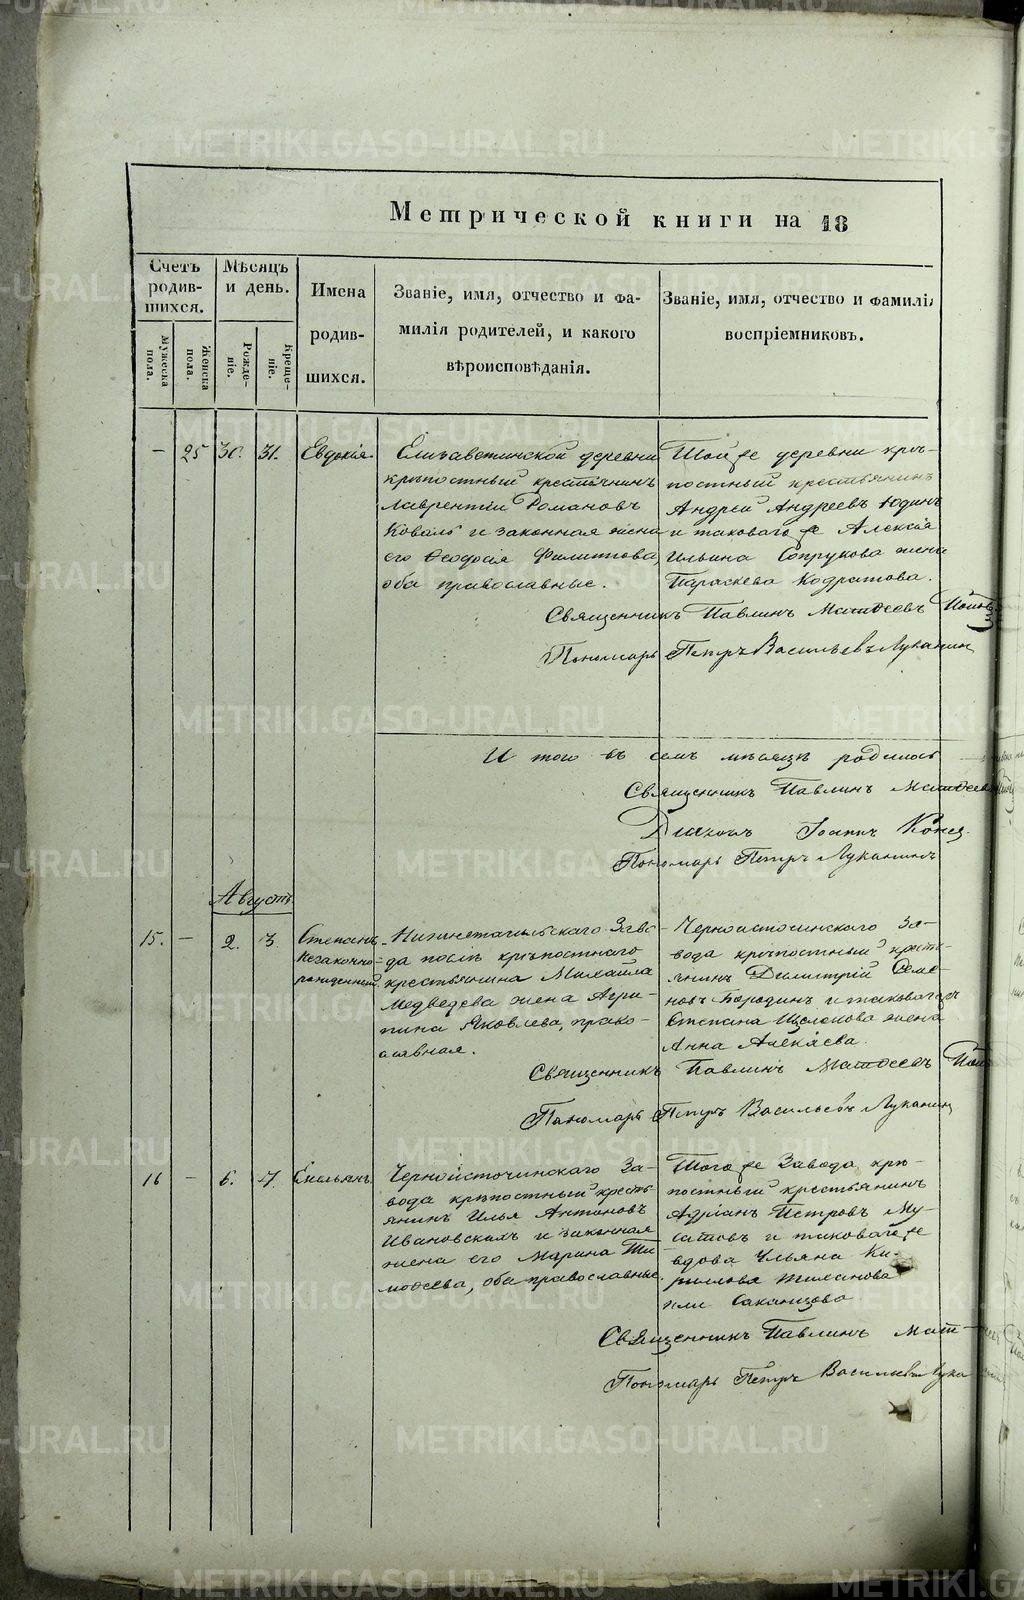 Метрической книги на 18
Счетъ родив-шихся.
Мѣсяцъ и день.
Имена родив-шихся.
Званіе, имя, отчество и фа-
милія родителей, и какого
вѣроисповѣданія.
Званіе, имя, отчество и фамилія
воспріемниковъ.
Мужеска пола.
Женска пола.
Рожде-ніе.
Креще-ніе.
— 25 30. 31. Евдокія.
Елизаветинской деревни
крѣпостный крестьянинъ
Лаврентій Романовъ
Коваль и законная жена
его Ѳеодосія Филиппова,
оба православные.
Той же деревни крѣ-
постный крестьянинъ
Андрей Андреевъ Юдинъ
и таковаго же Алексія
Ильина Сопрукова жена
Параскева Кодратова.
Священникъ Павлинъ Матѳеевъ
Пономарь Петръ Васильевъ Луканин
И того въ семъ мѣсяцѣ родилось
Священникъ Павлинъ Матѳеевъ
Діаконъ Іоаннъ
Пономарь Петръ Луканинъ
Августъ
15. — 2. 3. Степанъ
незаконно-
рожденный
Нижнетагильскаго Заво-
да послѣ крѣпостнаго
крестьянина Михаила
Медведева жена Агри-
пина Яковлева, право-
славная.
Черноисточинскаго За-
вода крѣпостный кресть-
янинъ Димитрій Семе-
новъ Бородинъ и таковаго же
Степана Щелокова жена
Анна Алексіева.
Священникъ Павлинъ Матѳеевъ
Пономарь Петръ Васильевъ Луканин
16 — 6. 7. Емельянъ
Черноисточинскаго За-
вода крѣпостный кресть-
янинъ Илья Антоновъ
Ивановскихъ и законная
жена его Марина Ти-
моѳеева, оба православные.
Того же Завода крѣ-
постный крестьянинъ
Адріанъ Петровъ Му-
сатовъ и таковаго же
вдова Ульяна Ки-
рилова
или
Священникъ Павлинъ Мат-
Пономарь Петръ Васильевъ Лука
METRIKI.GASO-URAL.RU